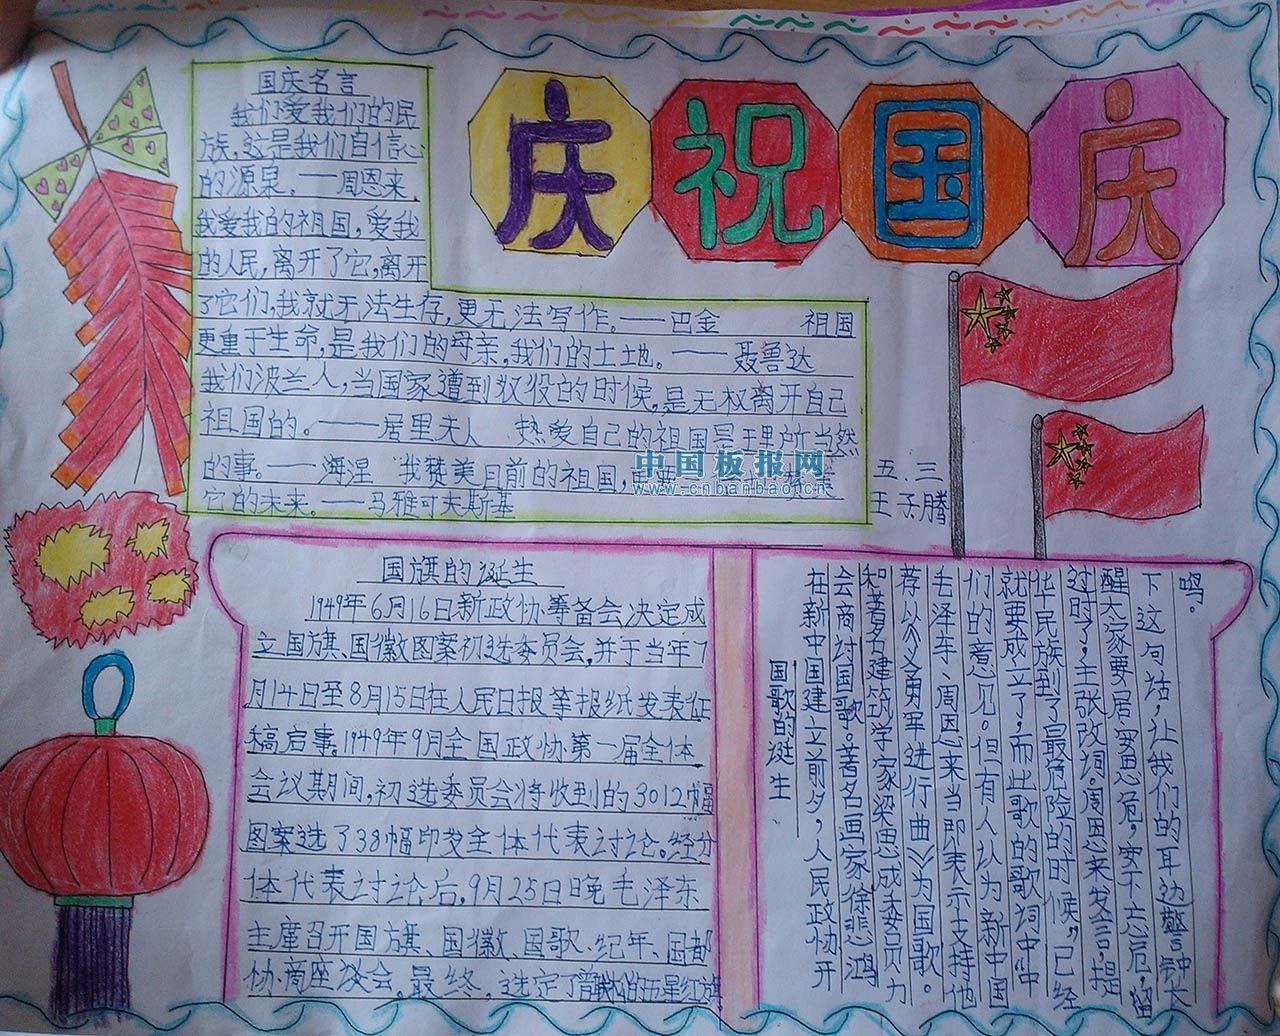 庆祝国庆
国庆名言
我们爱我们的民
族，这是我们自信心
的源泉。——周恩来
我爱我的祖国，爱我
的人民，离开了它，离开
了它们，我就无法生存，更无法写作。——巴金 祖国
更重于生命，是我们的母亲，我们的土地。——聂鲁达
我们波兰人，当国家遭到奴役的时候，是无权离开自己
祖国的。——居里夫人 热爱自己的祖国是理所当然
的事。——海涅 我赞美目前的祖国，
它的未来。——马雅可夫斯基
中国板报网
www.cnbanbao.cn
五.三
王子腾
国旗的诞生
1949年6月16日新政协筹备会决定成
立国旗、国徽图案初选委员会，并于当年7
月14日至8月15日在人民日报等报纸发表征
稿启事。1949年9月全国政协第一届全体
会议期间，初选委员会将收到的3012幅
图案选了38幅印发全体代表讨论。经分
体代表讨论后，9月25日晚毛泽东
主席召开国旗、国徽、国歌、纪年、国都
协商座谈会。最终，选定了曾联松的五星红旗
国歌的诞生
在新中国建立前夕，人民政协开
会商讨国歌。著名画家徐悲鸿
和著名建筑学家梁思成委员力
荐以《义勇军进行曲》为国歌。
毛泽东、周恩来当即表示支持他
们的意见。但有人认为新中国
就要成立了，而此歌的歌词中“中
华民族到了最危险的时候”已经
过时了，主张改词。周恩来发言，提
醒大家要居安思危，安不忘危，留
下这句话，让我们的耳边警钟长
鸣。